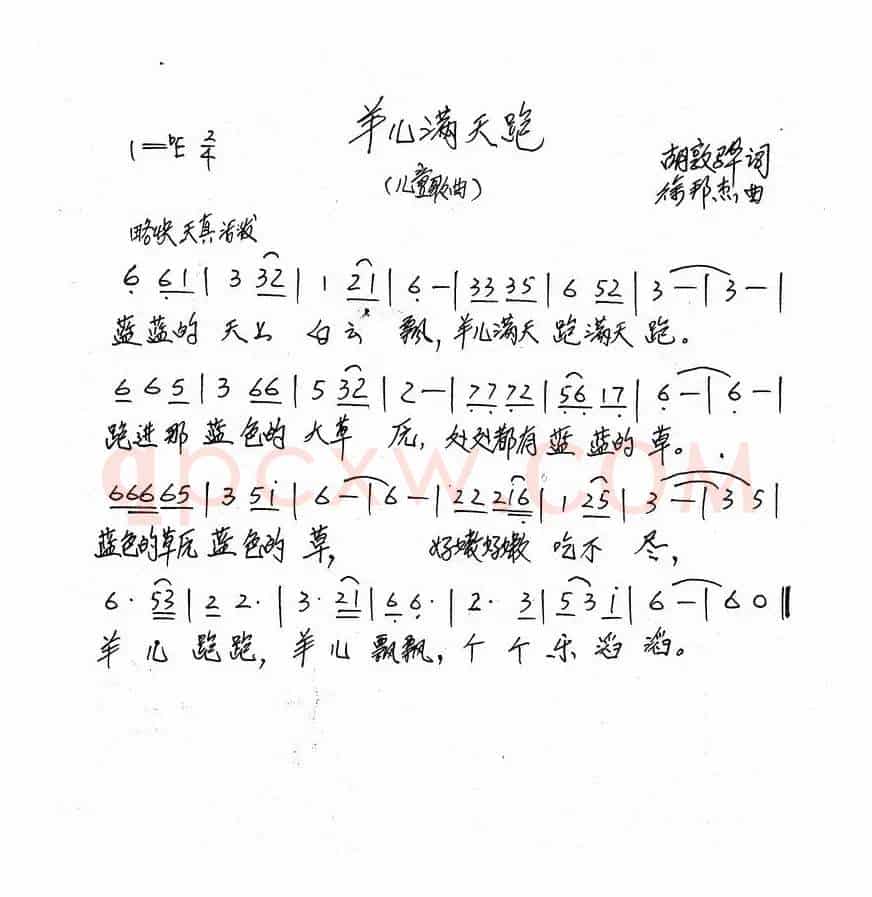 羊儿满天跑
1=♭E 2/4
(儿童歌曲)
胡敦骅词
徐邦杰曲
略快 天真活泼
6̣ 6̣1 | 3 32 | 1 21 | 6̣ - | 33 35 | 6 52 | 3 - | 3 - |
蓝蓝的 天上 白云 飘,羊儿满天 跑满天 跑。
6 6 5 | 3 66 | 5 32 | 2 - | 7̣7̣ 7̣2 | 5̣6̣ 17̣ | 6̣ - | 6̣ - |
跑进那 蓝色的 大草 原,处处都有 蓝 蓝的 草。
666 65 | 3 5i | 6 - | 6 - | 22 2i6 | 1 25 | 3 - | 3 5 |
蓝色的草原 蓝色的 草, 好嫩好嫩 吃不 尽,
6· 53 | 2 2· | 3· 21 | 6̣ 6̣· | 2· 3 | 5 3 i | 6 - | 6 0 ‖
羊 儿 跑跑,羊 儿 飘飘,个 个 乐 滔 滔。
qpcxw.com